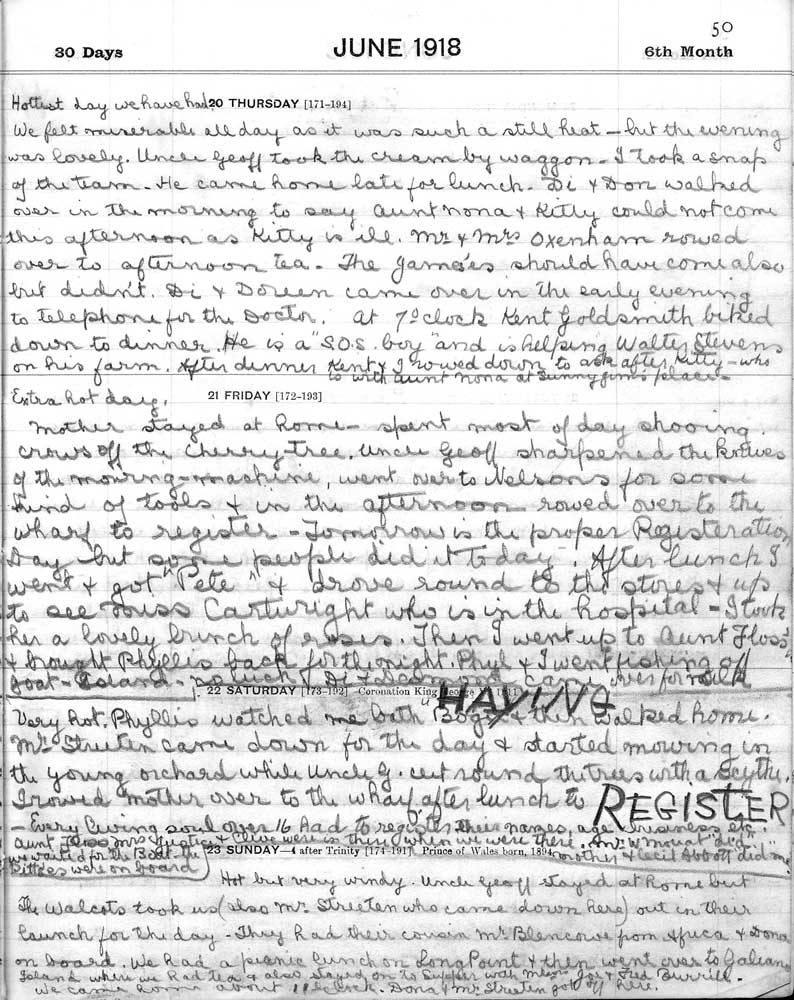 50
30 Days JUNE 1918 6th Month
Hottest day we have had. 20 THURSDAY [171-194]
We felt miserable all day as it was such a still heat – but the evening
was lovely. Uncle Geoff took the cream by waggon – I took a snap
of the team – He came home late for lunch. Di & Don walked
over in the morning to say Aunt Nona & Kitty could not come
this afternoon as Kitty is ill. Mr & Mrs Oxenham rowed
over to afternoon tea – The Jameses should have come also
but didn't. Di & Doreen came over in the early evening
to telephone for the Doctor. At 7 o'clock Kent Goldsmith biked
down to dinner. He is a "S.O.S. boy" and is helping Walter Stevens
on his farm. After dinner Kent & I rowed down to ask after Kitty – who
is with Aunt Nona at Sunny Jim's place –
Extra hot day. 21 FRIDAY [172-193]
Mother stayed at home – spent most of day shooing
crows off the cherry-tree. Uncle Geoff sharpened the knives
of the mowing-machine, went over to Nelsons for some
kind of tools & in the afternoon rowed over to the
wharf to register – Tomorrow is the proper Registeration
Day – but some people did it to day. After lunch I
went & got "Pete" & drove round to the stores & up
to see Miss Cartwright who is in the hospital – I took
her a lovely bunch of roses. Then I went up to Aunt Floss'
& brought Phyllis back for the night. Phyl & I went fishing off
Goat-Island – no luck. Di & Desmond came over for milk
22 SATURDAY [173-192] Coronation King George V., 1911
"HAYING
Very hot. Phyllis watched me bath & then walked home.
Mr Streeten came down for the day & started mowing in
the young orchard while Uncle G. cut round the trees with a Scythe.
I rowed mother over to the wharf after lunch to REGISTER
– Every living soul over 16 had to register their names, age, business etc.
Aunt Floss Mrs Justice & Clive were in there when we were there. Mr W Mouat "did"
we waited for the Boat – the mother & Cecil Abbott did me
23 SUNDAY—4 after Trinity [174-191]. Prince of Wales born, 1894
were on board
Hot but very windy. Uncle Geoff stayed at home but
The Walcots took us (also Mr Streeten who came down here) out in their
launch for the day – They had their cousin Mr Blencowe from Africa & Dona
on board. We had a picnic lunch on Long Point & then went over to Galiano
Island where we had tea & also stayed on to Supper with Messrs Joe & Fred Burrill –
We came home about 11 o'clock. Dona & Mr Streeten got off here.